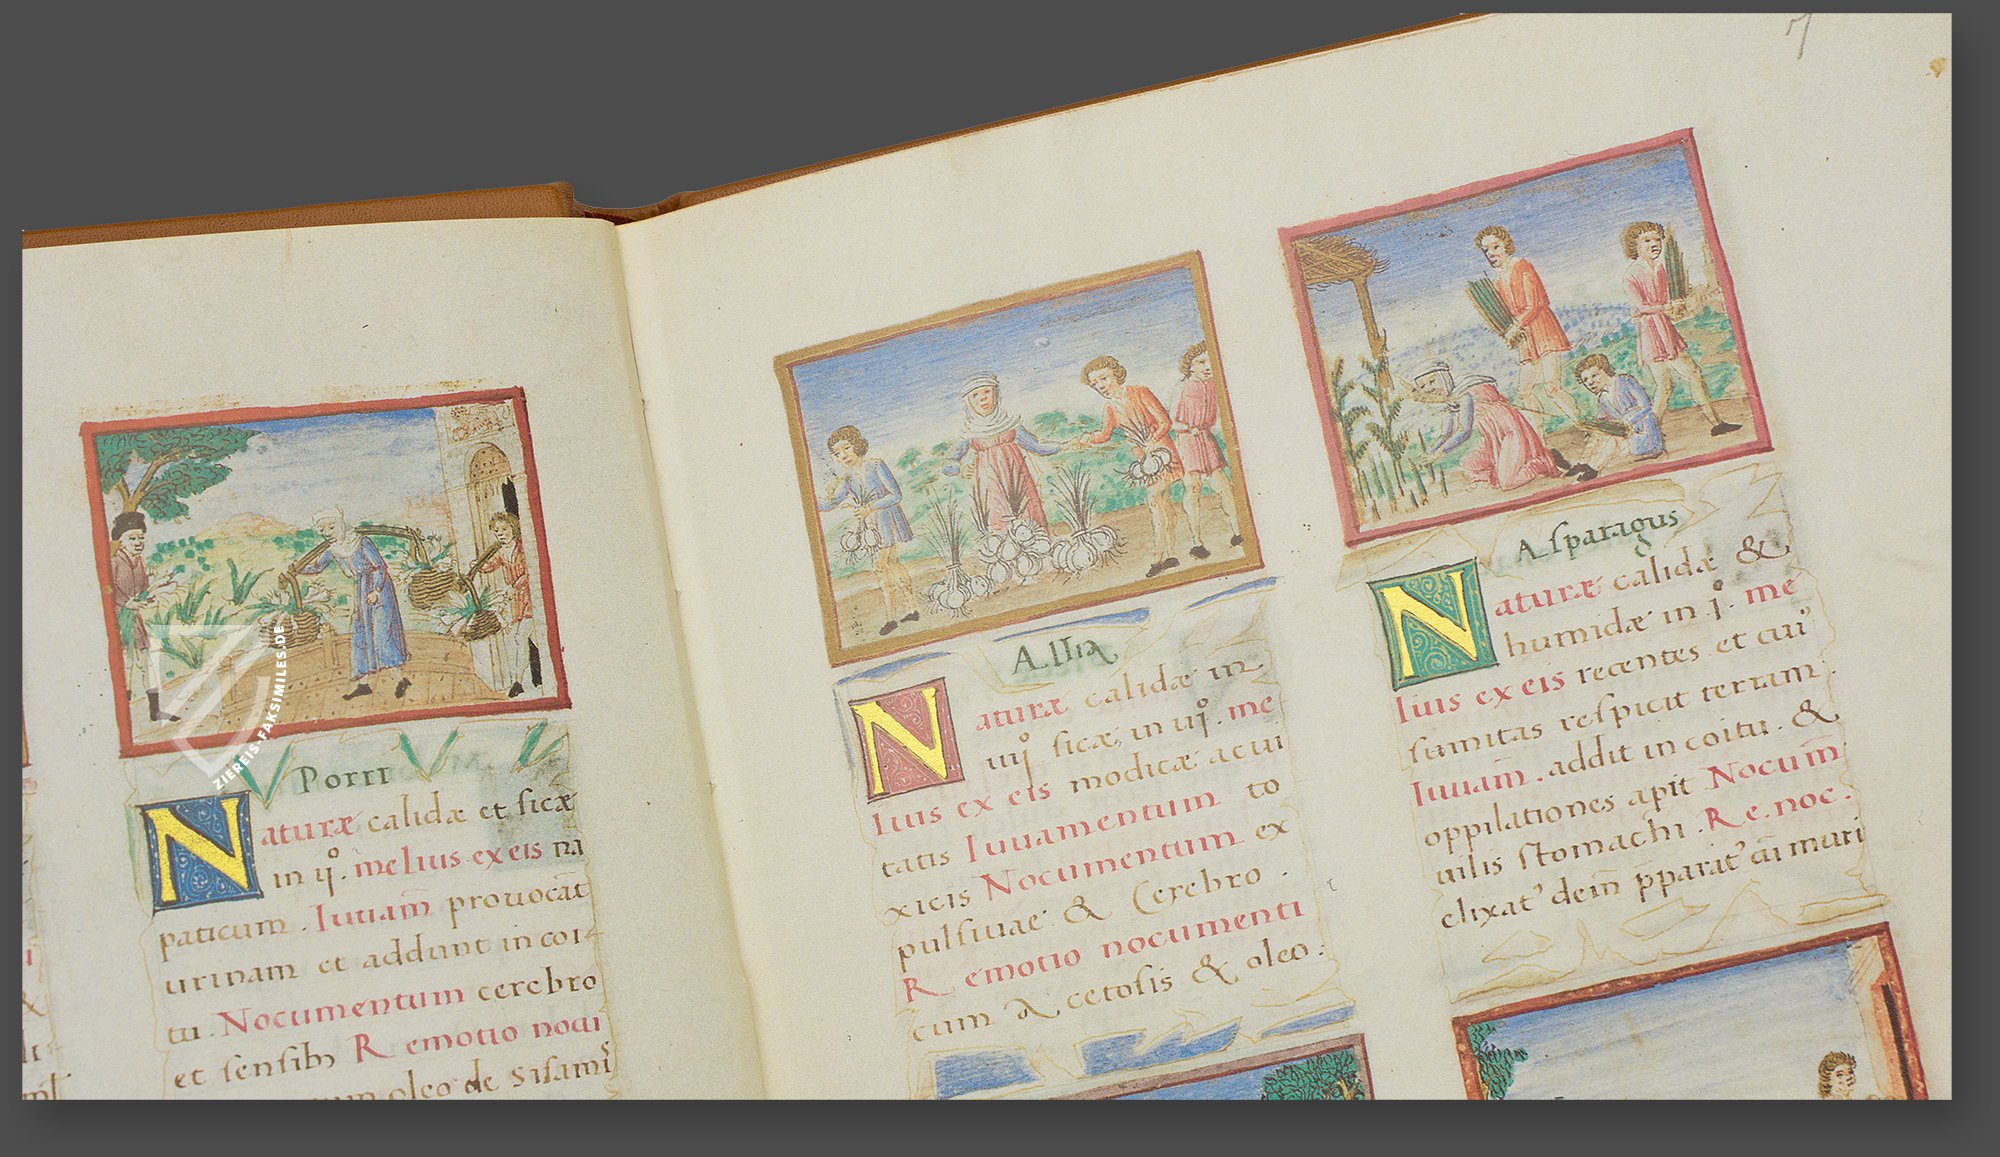 Porri
Naturæ calidæ et sicæ
in ijº. melius ex eis na
paticum. Iuuam̄ prouocat
urinam et addunt in coi
tu. Nocumentum cerebro
et sensibꝫ Remotio nocu
oleo de Sisami
ZIEREIS-FAKSIMILES.DE
7
Allia
Naturæ calidæ in
iiijº sicæ, in iijº. me
lius ex eis modicæ acui
tatis Iuuamentum to
xicis Nocumentum ex
pulsiuae & Cerebro.
Remotio nocumenti
cum Acetosis & oleo:
Asparagus
Naturæ calidæ &
humidæ in jº. me
lius ex eis recentes et cuiꝰ
sumitas respicit terram.
Iuuam̄. addit in coitu. &
oppilationes apit Nocum̄
uilis stomachi. Re. noc.
elixat' dein̄ p̄parat' cū muri